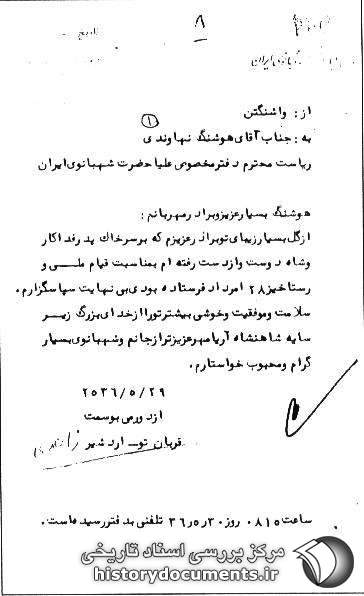 ۸
تاریخ
از : واشنگتن
۱
به : جناب آقای هوشنگ نهاوندی
ریاست محترم دفتر مخصوص علیاحضرت شهبانوی ایران
هوشنگ بسیار عزیز و برادر مهربانم :
از گل بسیار زیبای تو برادر عزیزم که بر سر خاك پدر فداکار
و شاه دوست و از دست رفته ام بمناسبت قیام ملی و
رستاخیز ۲۸ امرداد فرستاده بودی بی نهایت سپاسگزارم .
سلامت و موفقیت و خوشی بیشتر تو را از خدای بزرگ زیر
سایه شاهنشاه آریامهر عزیزتر از جانم و شهبانوی بسیار
گرام و محبوب خواستارم .
۲۵۳۶/۵/۲۹
از دور می بوسمت
قربان تو ـ اردشیر زاهدی
ساعت ۰۸۱۵ روز ۳۶٫۵٫۳۰ تلفنی بدفتر رسیده است .
مرکز بررسی اسناد تاریخی
historydocuments.ir